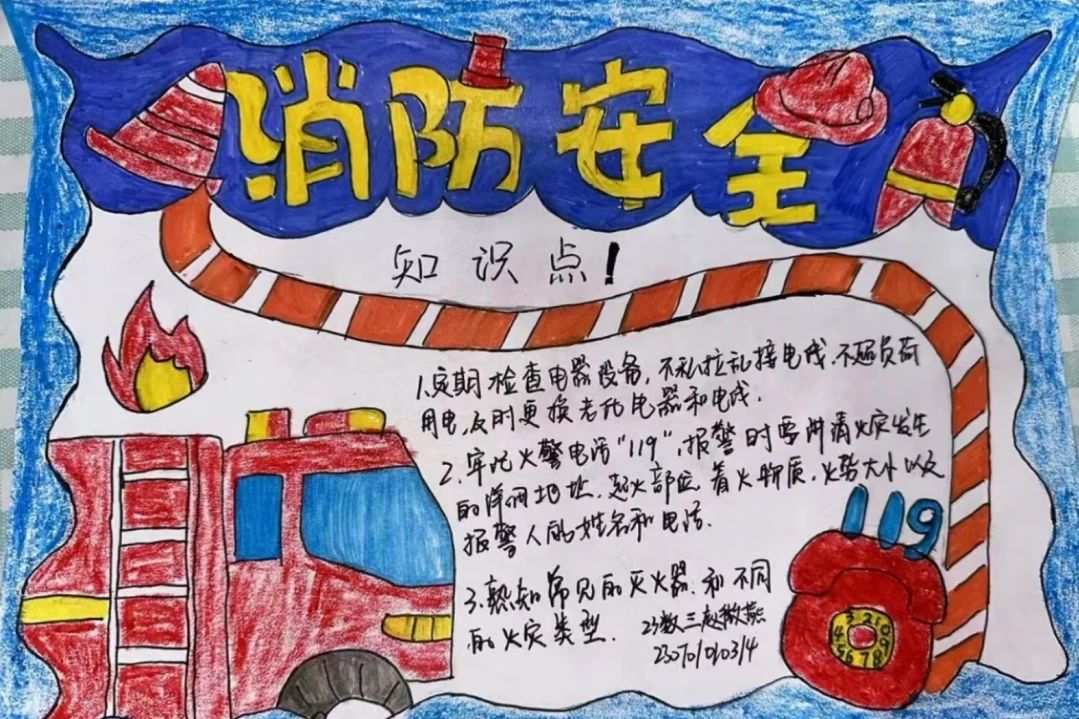 消防安全
知识点！
1.定期检查电器设备，不私拉乱接电线.不超负荷
用电,及时更换老化电器和电线.
2.牢记火警电话"119",报警时要讲清火灾发生
的详细地址.起火部位.着火物质.火势大小以及
报警人的姓名和电话.
3.熟知常见的灭火器.和不同
的火灾类型.
23数三赵微燕
119
3210
4 9
5678